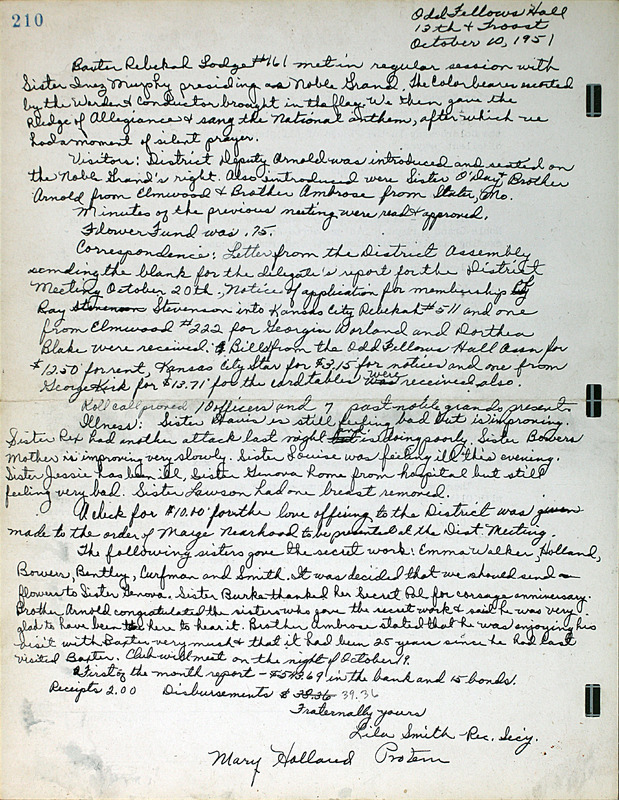 210
Odd Fellows Hall
13th & Troost
October 10, 1951
Baxter Rebekah Lodge #161 met in regular session with
Sister Inez Murphy presiding as Noble Grand. The Color bearer escorted
by the Warden & Conductor brought in the flag. We then gave the
Pledge of Allegiance & sang the National anthem, after which we
had a moment of silent prayer.
Visitors: District Deputy Arnold was introduced and seated on
the Noble Grand's right. Also introduced were Sister O'Day & Brother
Arnold from Elmwood & Brother Ambrose from Slater, Mo.
Minutes of the previous meeting were read & approved.
Flower Fund was .75.
Correspondence: Letter from the District Assembly
sending the blank for the delegate's report for the District
Meeting October 20th, Notice of application for membership by
Ray Stevenson Stevenson into Kansas City Rebekah #511 and one
from Elmwood #222 for Georgia Worland and Dorthea
Blake were received. Bills from the Odd Fellows Hall Assn for
$12.50 for rent, Kansas City Star for $3.15 for notices and one from
George Kirk for $13.71 for the card tables was were received also.
Roll call proved 10 officers and 7 past noble grands present.
Illness: Sister Davis is still feeling bad but is improving.
Sister Rex had another attack last night and is doing poorly. Sister Bowers
Mother is improving very slowly. Sister Louise was feeling ill this evening.
Sister Jessie has been ill, Sister Genova home from hospital but still
feeling very bad. Sister Lawson had one breast removed.
A check for $10.00 for the love offering to the District was given
made to the order of Marge Nearhood to be presented at the Dist. Meeting.
The following sisters gave the secret work: Emma Walker, Holland,
Bower, Bentley, Curfman and Smith. It was decided that we should send
flowers to Sister Genova. Sister Burke thanked her Secret Pal for corsage anniversary.
Brother Arnold congratulated the sisters who gave the secret work & said he was very
glad to have been here to hear it. Brother Ambrose stated that he was enjoying his
visit with Baxter very much & that it had been 25 years since he had last
visited Baxter. Club will meet on the night of October 19.
First of the month report - in the bank and 15 bonds.
Receipts 2.00 Disbursements $ 39.36 39.36
Fraternally yours
Lila Smith Rec. Secy.
Mary Holland Protem